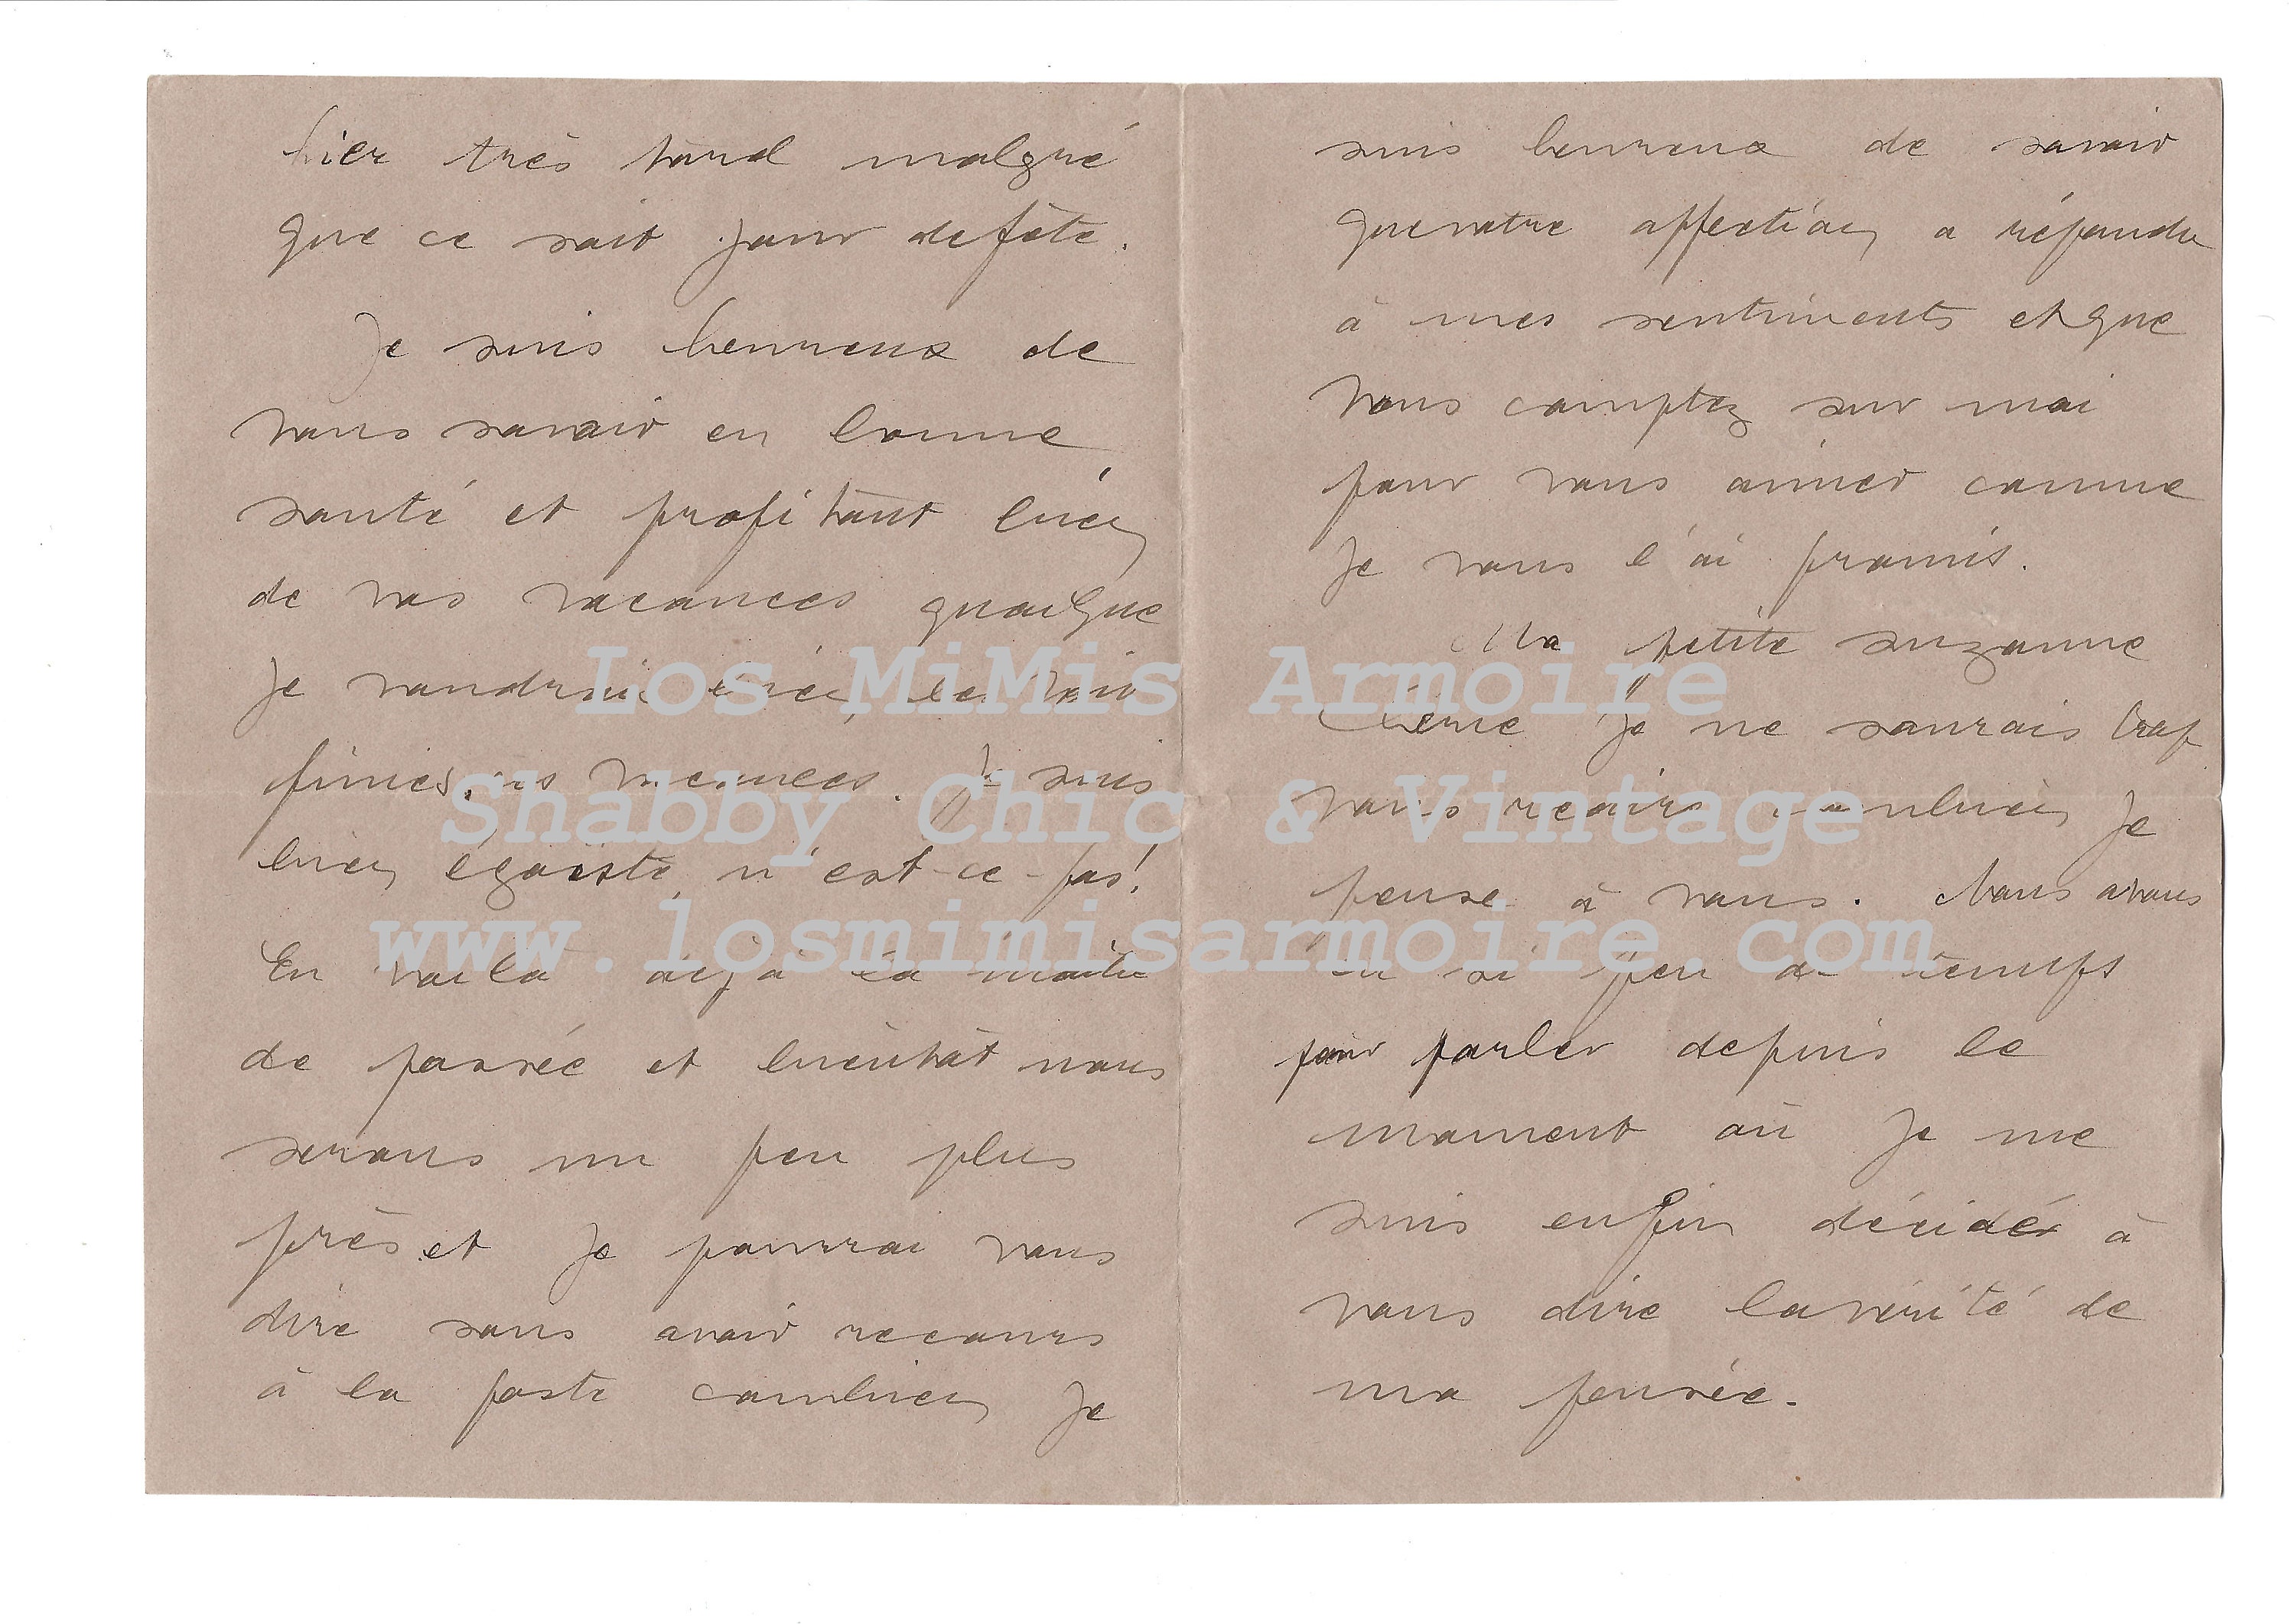 hier très tard malgré
que ce soit jour de fête.
Je suis heureux de
vous savoir en bonne
santé et profitant bien
de vos vacances quoique
je voudrais bien les voir
finies, ces vacances. Je suis
bien égoïste, n'est-ce-pas!
En voilà déjà la moitié
de passée et bientôt nous
serons un peu plus
près et je pourrai vous
dire sans avoir recours
à la poste combien je
suis heureux de savoir
que votre affection a répondu
à mes sentiments et que
vous comptez sur moi
pour vous aimer comme
je vous l'ai promis.
Ma petite suzanne
chérie je ne saurais trop
vous redire combien je
pense à vous. Nous avons
eu si peu de temps
pour parler depuis le
moment où je me
suis enfin décidé à
vous dire la vérité de
ma pensée.
Los MiMis Armoire
Shabby Chic & Vintage
www.losmimisarmoire.com